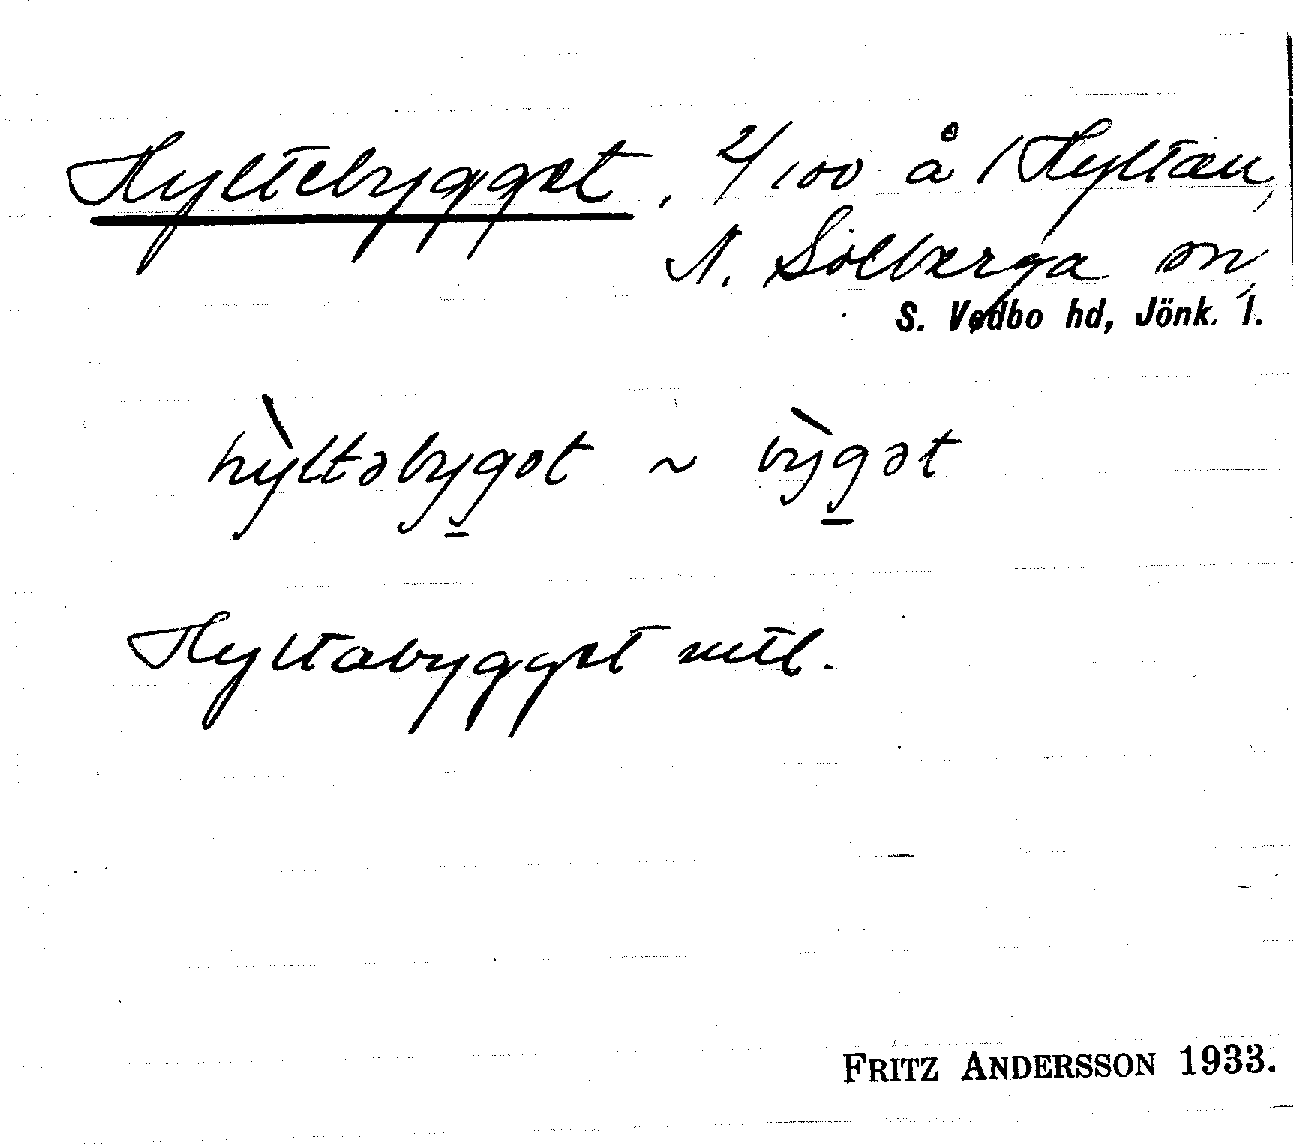 Hyltebygget. 2/100 å 1 Hyltan,
N. Solberga sn,
S. Vedbo hd, Jönk. l.
hỳltəbyg̱ət ~ bỳg̱ət
Hyltabygget mtl.
FRITZ ANDERSSON 1933.